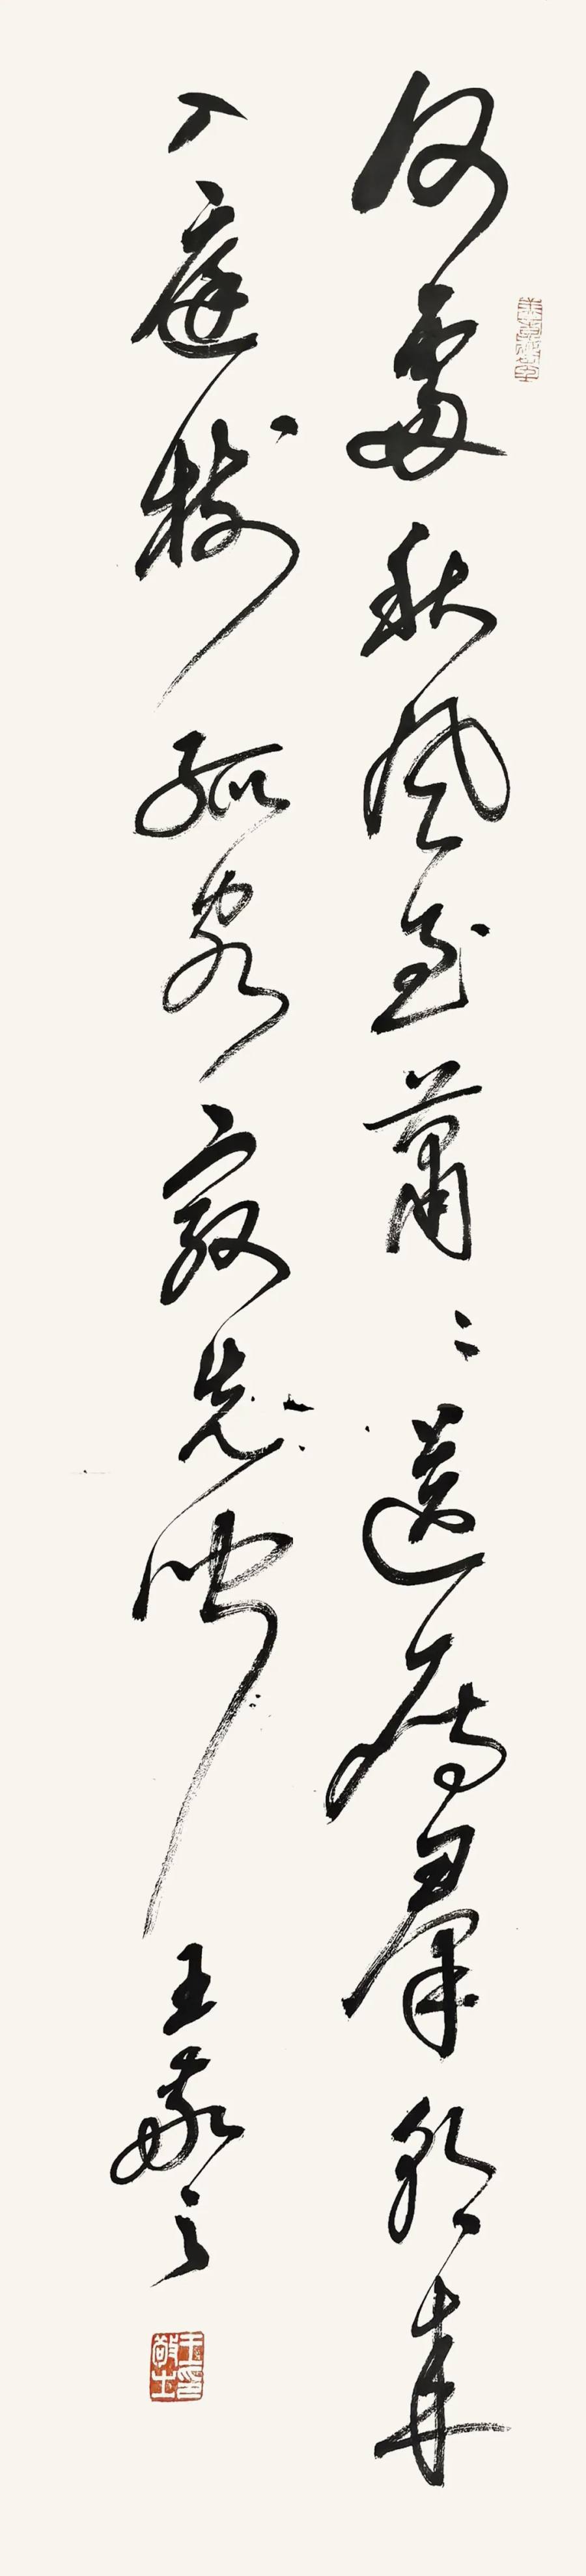 何處秋風至蕭〻送雁羣朝來
入庭樹孤客最先聞 王敬之